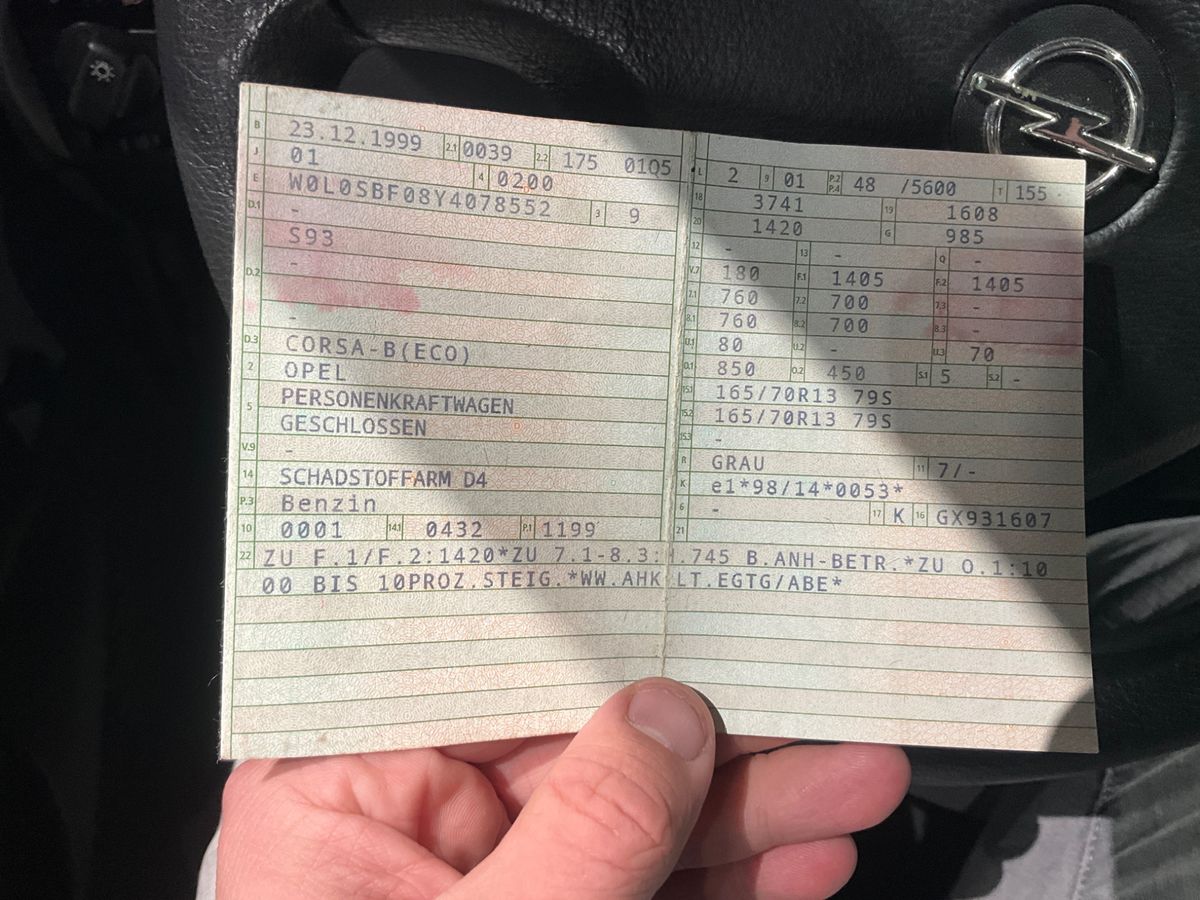 B 23.12.1999 2.1 0039 2.2 175 0105
J 01 4 0200
E W0L0SBF08Y4078552 3 9
D.1 -
S93
D.2 -
-
D.3 CORSA-B(ECO)
2 OPEL
5 PERSONENKRAFTWAGEN
GESCHLOSSEN
V.9 -
14 SCHADSTOFFARM D4
P.3 Benzin
10 0001 14.1 0432 P.1 1199
L 2 9 01 P.2 P.4 48 /5600 T 155
18 3741 19 1608
20 1420 G 985
12 - 13 - Q -
V.7 180 F.1 1405 F.2 1405
7.1 760 7.2 700 7.3 -
8.1 760 8.2 700 8.3 -
U.1 80 U.2 - U.3 70
O.1 850 O.2 450 S.1 5 S.2 -
15.1 165/70R13 79S
15.2 165/70R13 79S
15.3 -
R GRAU 11 7/-
K e1*98/14*0053*
6 - 17 K 16 GX931607
21
22 ZU F.1/F.2:1420*ZU 7.1-8.3: .745 B.ANH-BETR.*ZU O.1:10
00 BIS 10PROZ.STEIG.*WW.AHK LT.EGTG/ABE*